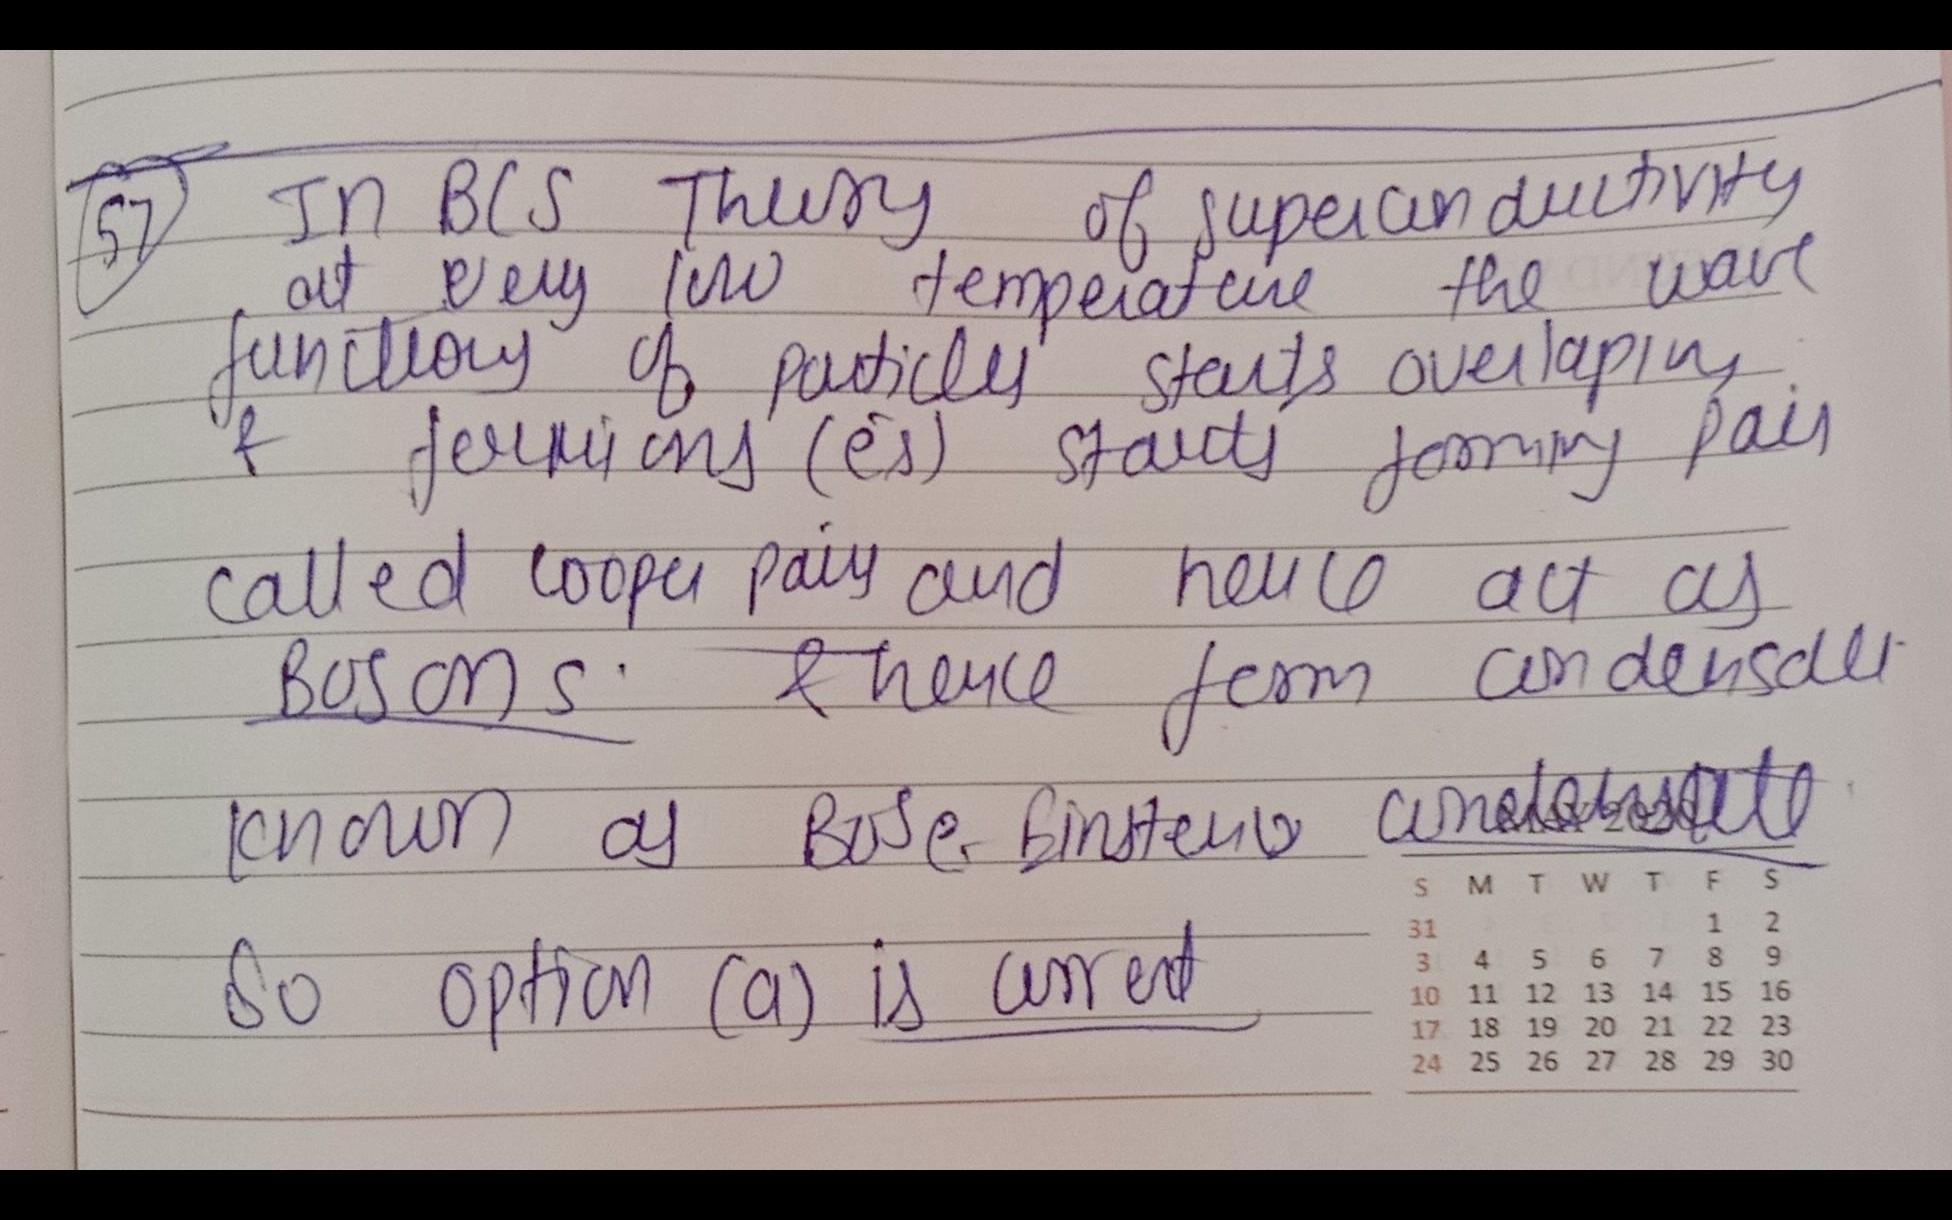 57 In BCS Theory of superconductivity
at very low temperature the wave
functions of particles starts overlaping
& fermions (e⁻s) starts forming pair
called cooper pairs and hence act as
Bosons. & hence form condensate
known as Bose-Einstein condensate
So option (a) is correct
MAY 2020
S M T W T F S
31 1 2
3 4 5 6 7 8 9
10 11 12 13 14 15 16
17 18 19 20 21 22 23
24 25 26 27 28 29 30